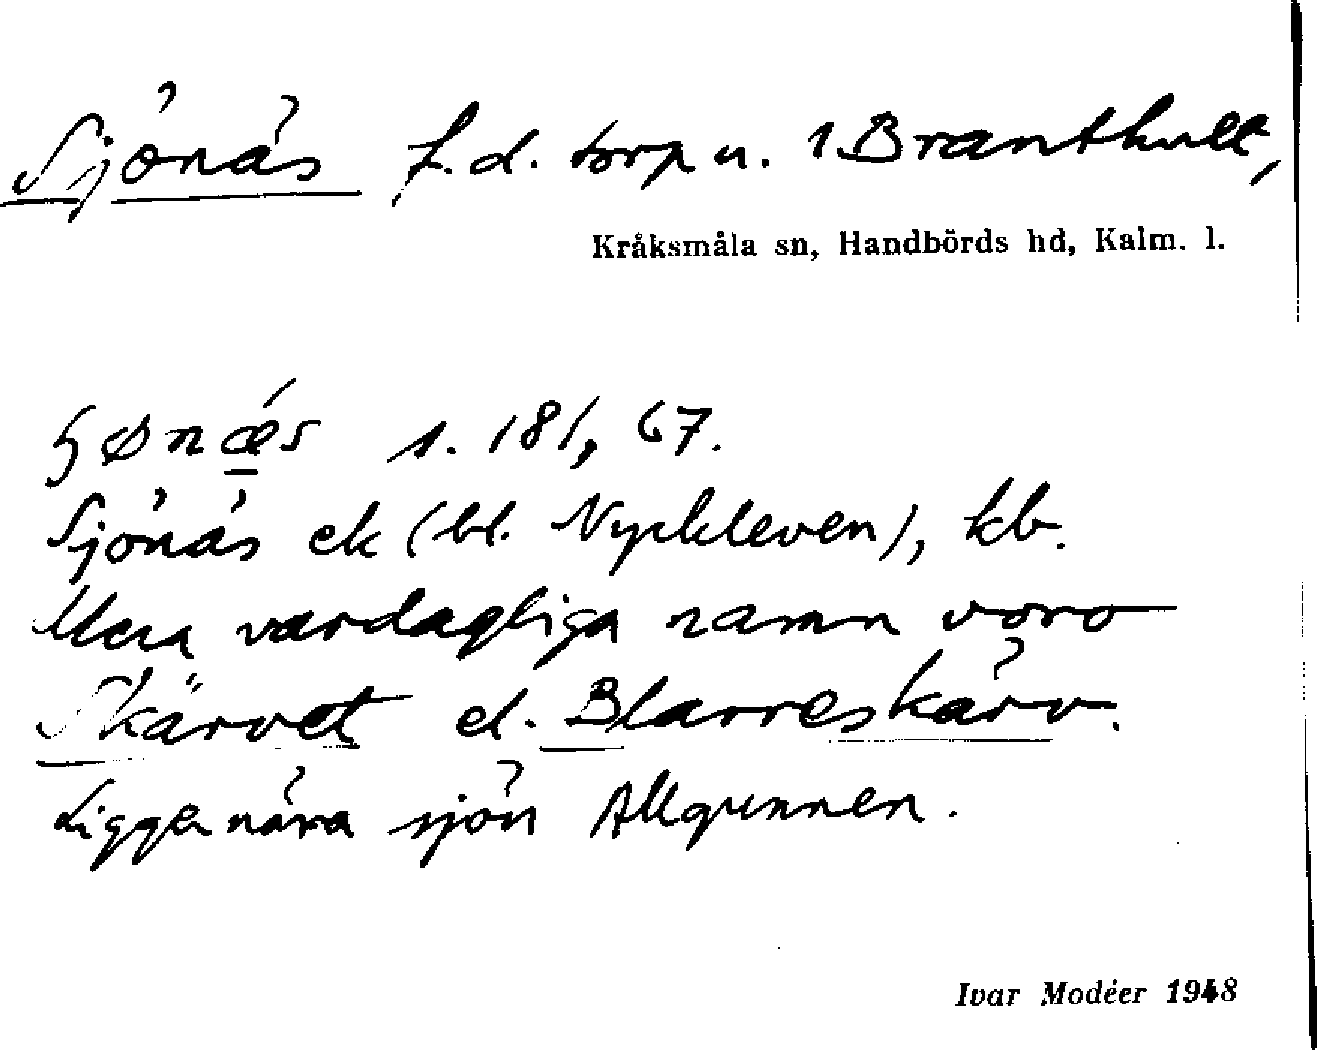 Sjönäs f.d. torp u. 1 Branthult,
Kråksmåla sn, Handbörds hd, Kalm. l.
ɧønǽ̲s s. 181, 67.
Sjönäs ek (bl. Nyckleven), kb.
Mera vardagliga namn voro
Skärvet el. Blarreskärv.
Ligger nära sjön Allgunnen.
Ivar Modéer 1948